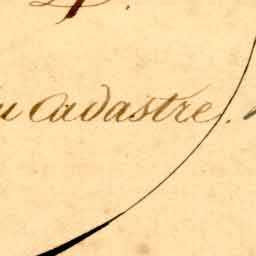 u Cadastre.